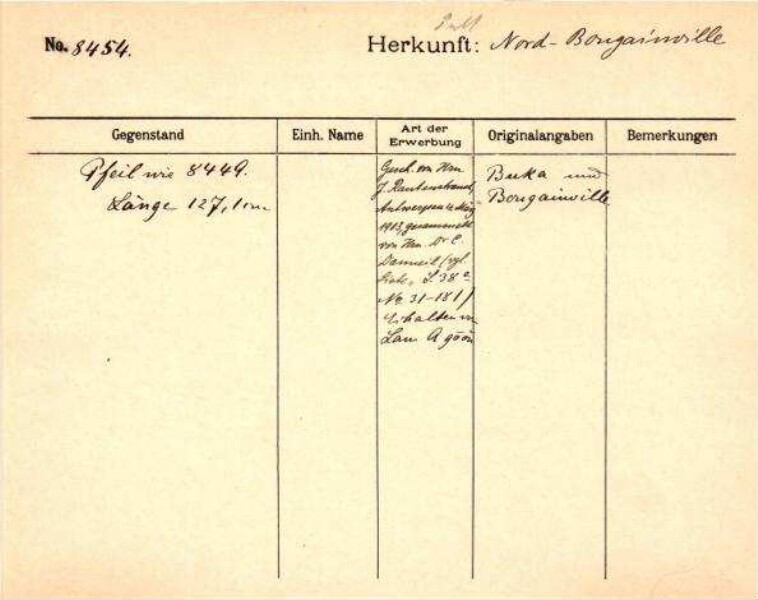 No. 8454.
Herkunft: Nord-Bougainville
Gegenstand
Einh. Name
Art der
Erwerbung
Originalangaben
Bemerkungen
Pfeil wie 8449.
Länge 127,1 cm
Gesch. von Hrn
J. Rautenstrauch,
Antwerpen
1913, gesammelt
von Hrn. Dr.
(vgl.
S. 38
No. 31-181)
Erhalten
Buka und
Bougainville